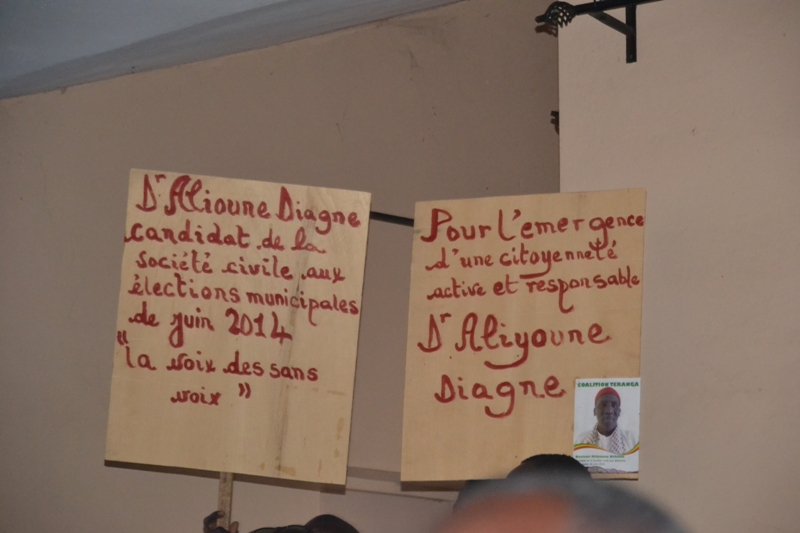 Dr Alioune Diagne
candidat de la
société civile aux
élections municipales
de juin 2014
"la voix des sans
voix"
Pour l'emergence
d'une citoyenneté
active et responsable
Dr Aliyoune
Diagne
COALITION TERANGA